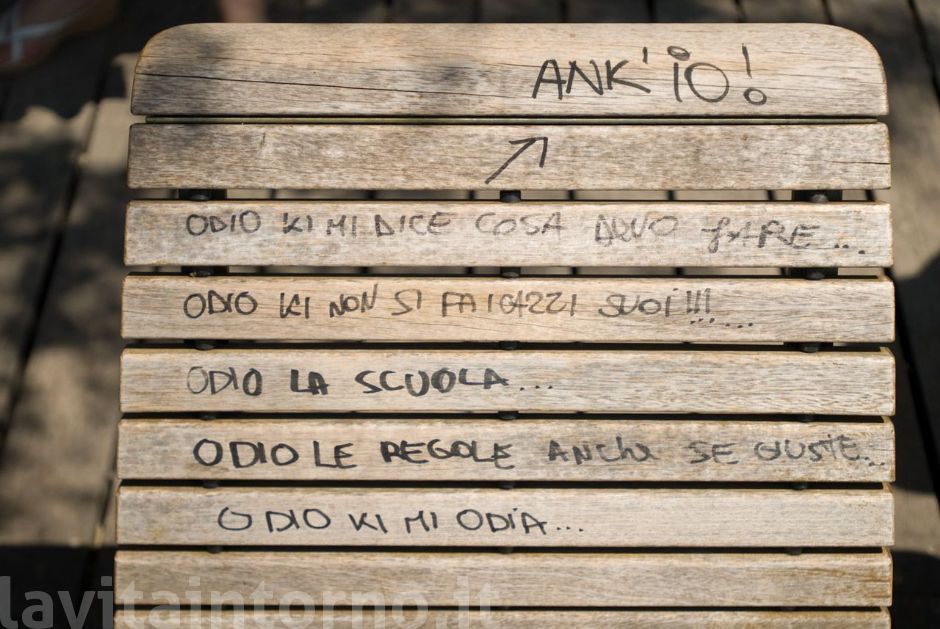 ANK'IO!
ODIO KI MI DICE COSA DEVO FARE...
ODIO KI NON SI FA I CAZZI SUOI!!!...
ODIO LA SCUOLA...
ODIO LE REGOLE ANCHE SE GIUSTE...
ODIO KI MI ODIA...
lavitaintorno.it